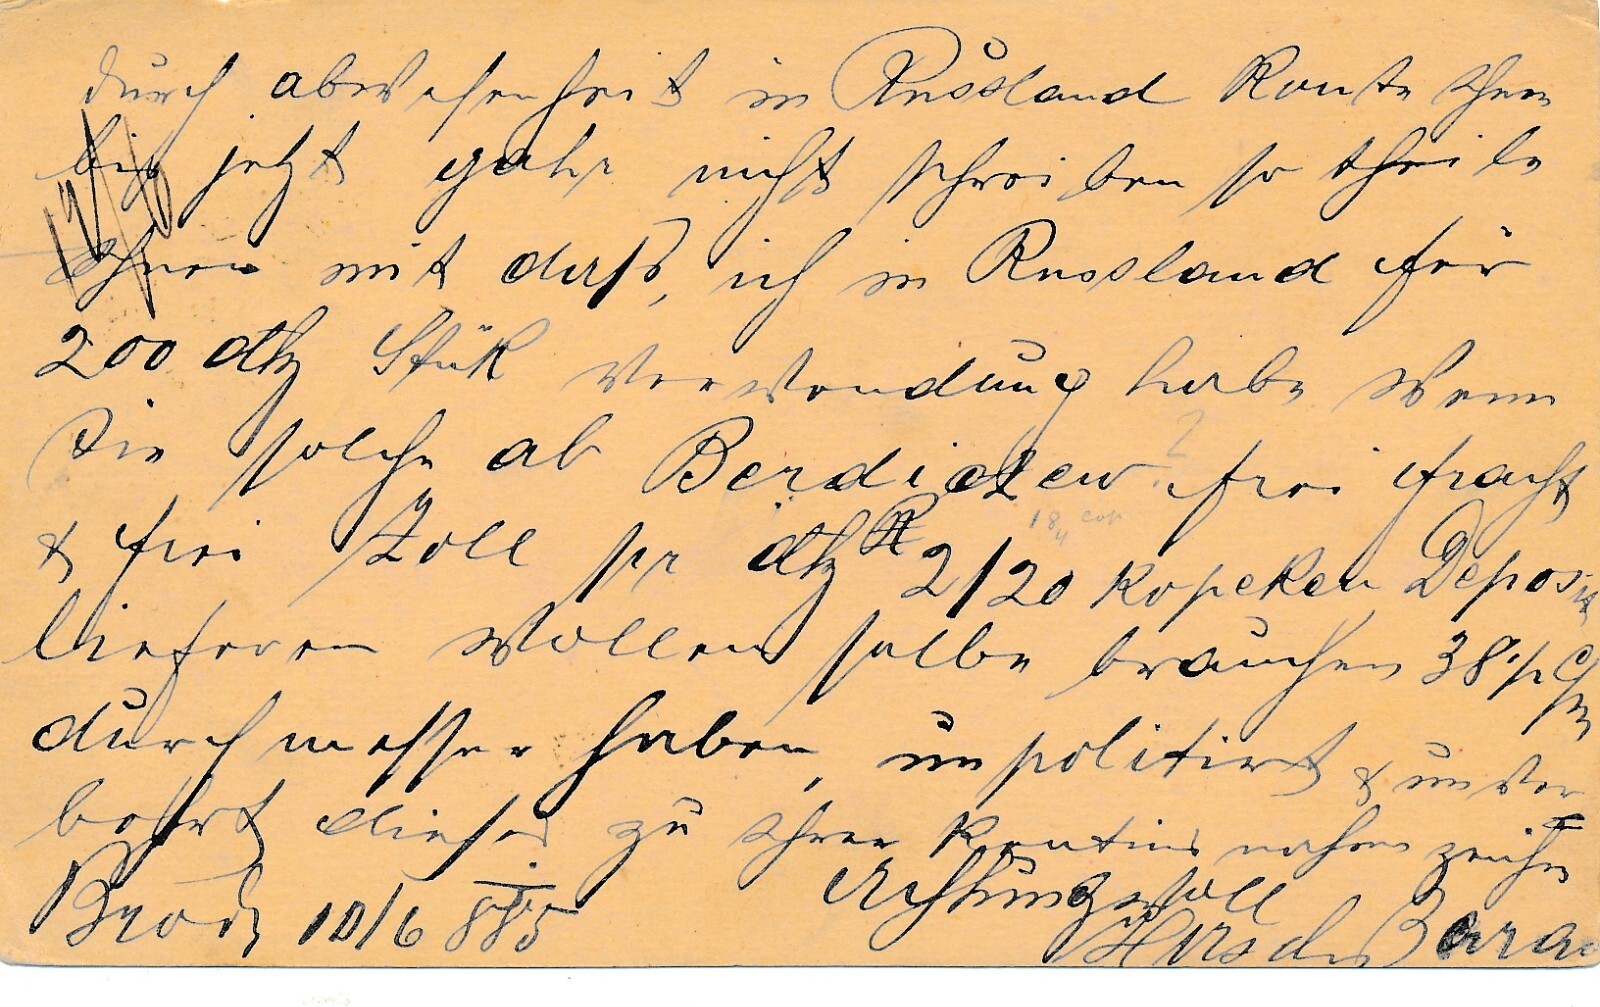 durch abwesenheit in Russland konte Ihnen
bis jetzt gahr nicht schreiben so theile
Ihnen mit daß, ich in Russland für
200 dtz Stük verwendung habe wenn
Sie solche ab Berdiczew frei fracht
& frei Zoll pr dtz R 2/20 Kopeken Deposit
lieferen wollen selbe brauchen 38
durchmesser haben, unpolitirt & unver
bohrt dieses zu Ihrer kentnis nehmen zeichne
Achtungsvoll
Brody 10/6 885
Hirsch Bara
12/6